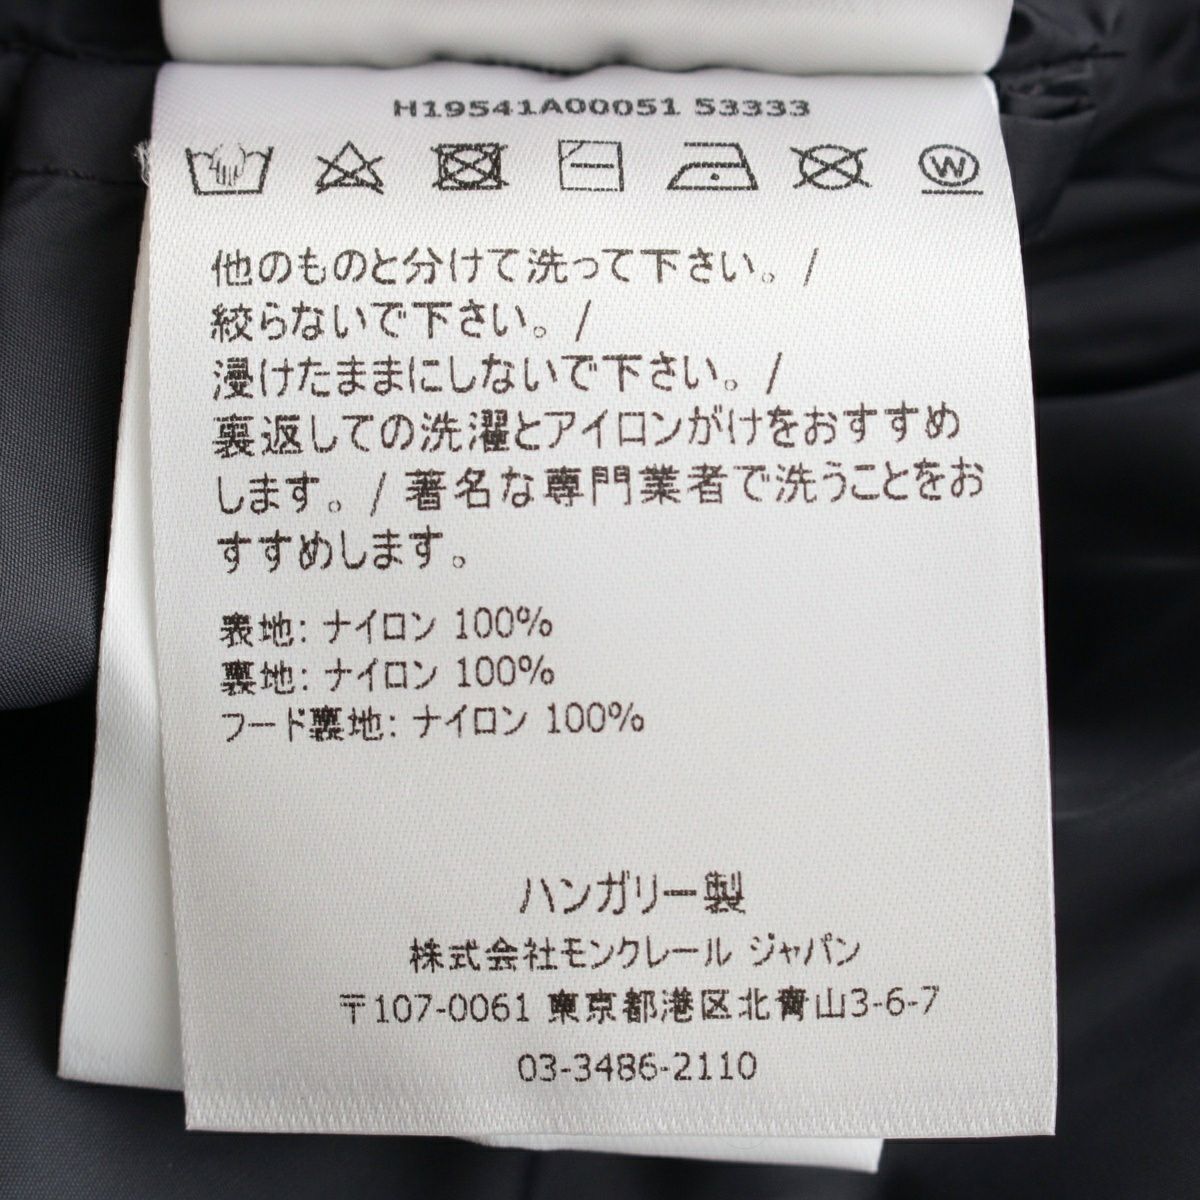 H19541A00051 53333
W
他のものと分けて洗って下さい。/
絞らないで下さい。/
浸けたままにしないで下さい。/
裏返しての洗濯とアイロンがけをおすすめ
します。/ 著名な専門業者で洗うことをお
すすめします。
表地: ナイロン 100%
裏地: ナイロン 100%
フード裏地: ナイロン 100%
ハンガリー製
株式会社モンクレール ジャパン
〒107-0061 東京都港区北青山3-6-7
03-3486-2110